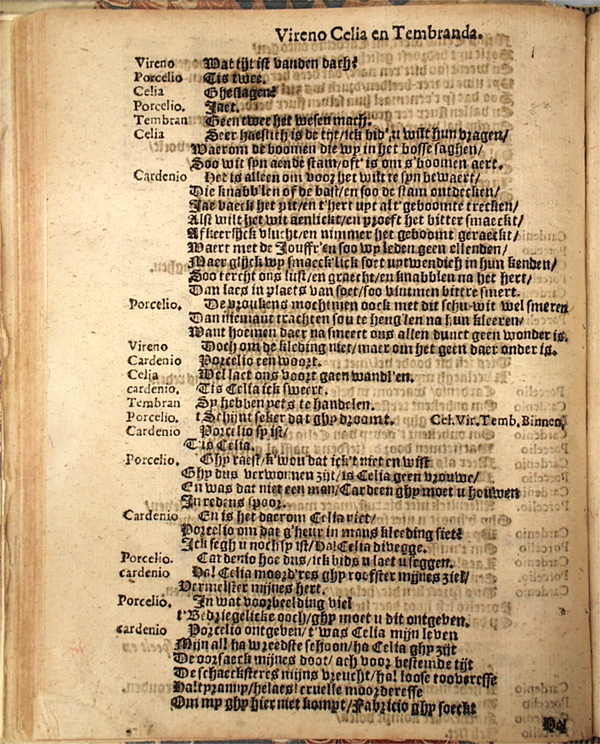 Vireno Celia en Tembranda.
Vireno Wat tijt ist vanden dach?
Porcelio Tis twee.
Celia Gheslagen?
Porcelio. Jaet.
Tembran Geen twee het wesen mach.
Celia Seer haestich is de tijt/ick bid'u wilt hun vragen/
Waerom de boomen die wy in het bosse saghen/
Soo wit syn aende stam/oft' is om s'boomen aert.
Cardenio Het is alleen om voor het wilt te syn bewaert/
Die knabb'len of de bast/en soo de stam ontdecken/
Jae vaeck het pit/en t'hert uyt alt'geboomte trecken/
Alst wilt het wit aenlickt/en proeft het bitter smaeckt/
Afkeerlijck vlucht/en nimmer het geboomt geraeckt/
Waert met de Jouffr'en soo wy leden geen ellenden/
Maer glijck wy smaeck'lick soet uytwendich in hun kenden/
Soo tercht ons lust/en graecht/en knabblen na het hert/
Dan laes in plaets van soet/soo vintmen bittre smert.
Porcelio. De vroukens mochtmen oock met dit schu-wit wel smeren
Dan niemant trachten sou te heng'len na hun kleeren/
Want hoemen daer na smeert ons allen dunct geen wonder is.
Vireno Doch om de kleding niet/maer om het geen daer onder is.
Cardenio Porcelio een woort.
Celia Wel laet ons voort gaen wandl'en.
cardenio. Tis Celia ick sweert.
Tembran Sy hebben yets te handelen.
Porcelio. t'Schijnt seker dat ghy droomt. Cel.Vir.Temb.Binnen.
Cardenio Porcelio sy ist/
Tis Celia.
Porcelio. Ghy raest/k'wou dat ick't niet en wist
Ghy dus verwonnen zijt/is Celia geen vrouwe/
En was dat niet een man/Cardeen ghy moet u houwen
In redens spoor.
Cardenio En is het daerom Celia niet/
Porcelio om dat g'heur in mans kleeding siet?
Ick segh u noch sy ist/Ha!Celia divegge.
Porcelio. Cardenio hoe dus/ick bids u laet u seggen.
cardenio Ha! Celia moord'res ghy roofster mijnes ziel/
Vermeester mijnes hert.
Porcelio. In wat voorbeelding viel
t'Bedriegelicke ooch/ghy moet u dit ontgeven.
cardenio Porcelio ontgeven/t'was Celia mijn leven
Mijn all ha wreedste schoon/ha Celia ghy zijt
De oorsaeck mijnes doot/ach voor bestemde tijt
De schaecksteres mijns vreucht/ha! loose tooveresse
Ha!tyranny/helaes! cruelle moorderesse
Om my ghy hier niet kompt/Fabricio ghy soeckt